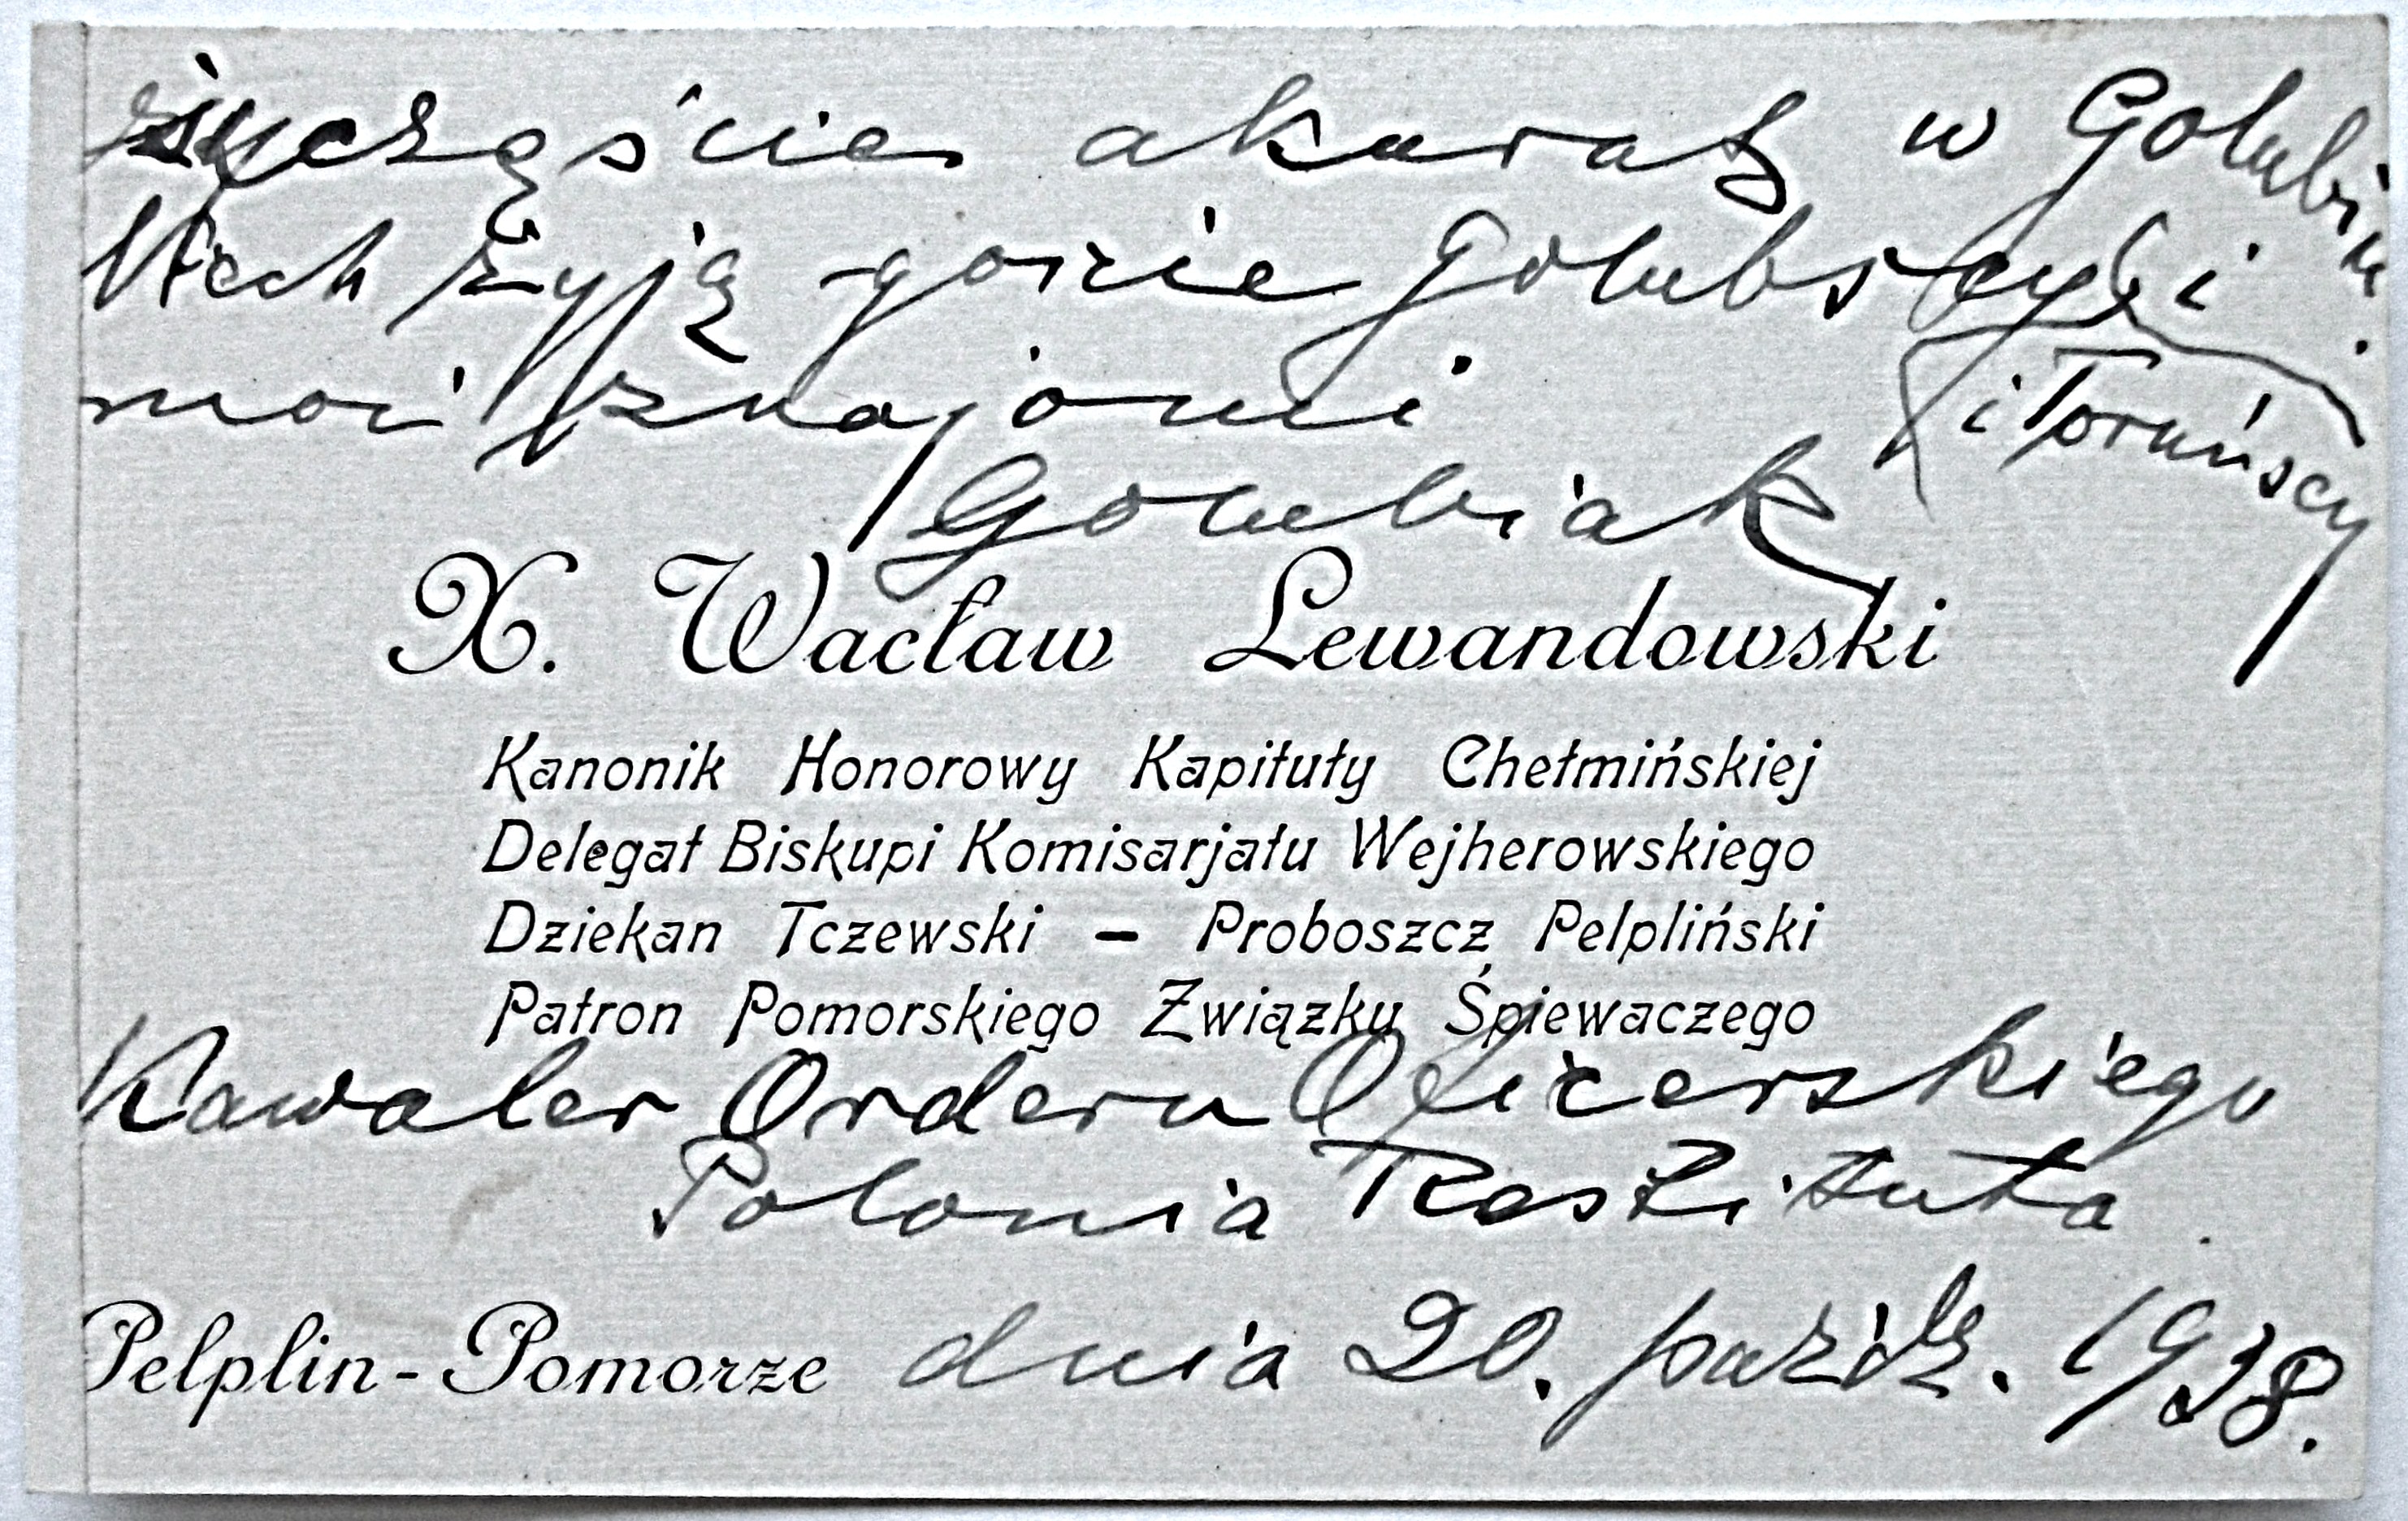 szczęście akurat w Golubiu.
Niech żyją gościе golubscy i
moi znajomi
i toruńscy
Golubiak
X. Wacław Lewandowski
Kanonik Honorowy Kapituły Chełmińskiej
Delegat Biskupi Komisarjatu Wejherowskiego
Dziekan Tczewski – Proboszcz Pelpliński
Patron Pomorskiego Związku Śpiewaczego
Kawaler Orderu Oficerskiego
Polonia Restituta.
Pelplin-Pomorze dnia 20. paźdz. 1938.